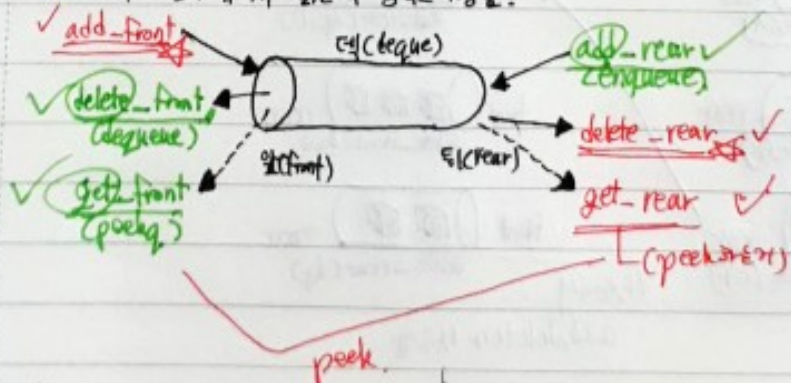 add_front
덱(deque)
add_rear
(enqueue)
delete_front
(dequeue)
delete_rear
앞(front)
뒤(rear)
get_front
(peekq)
get_rear
peek.